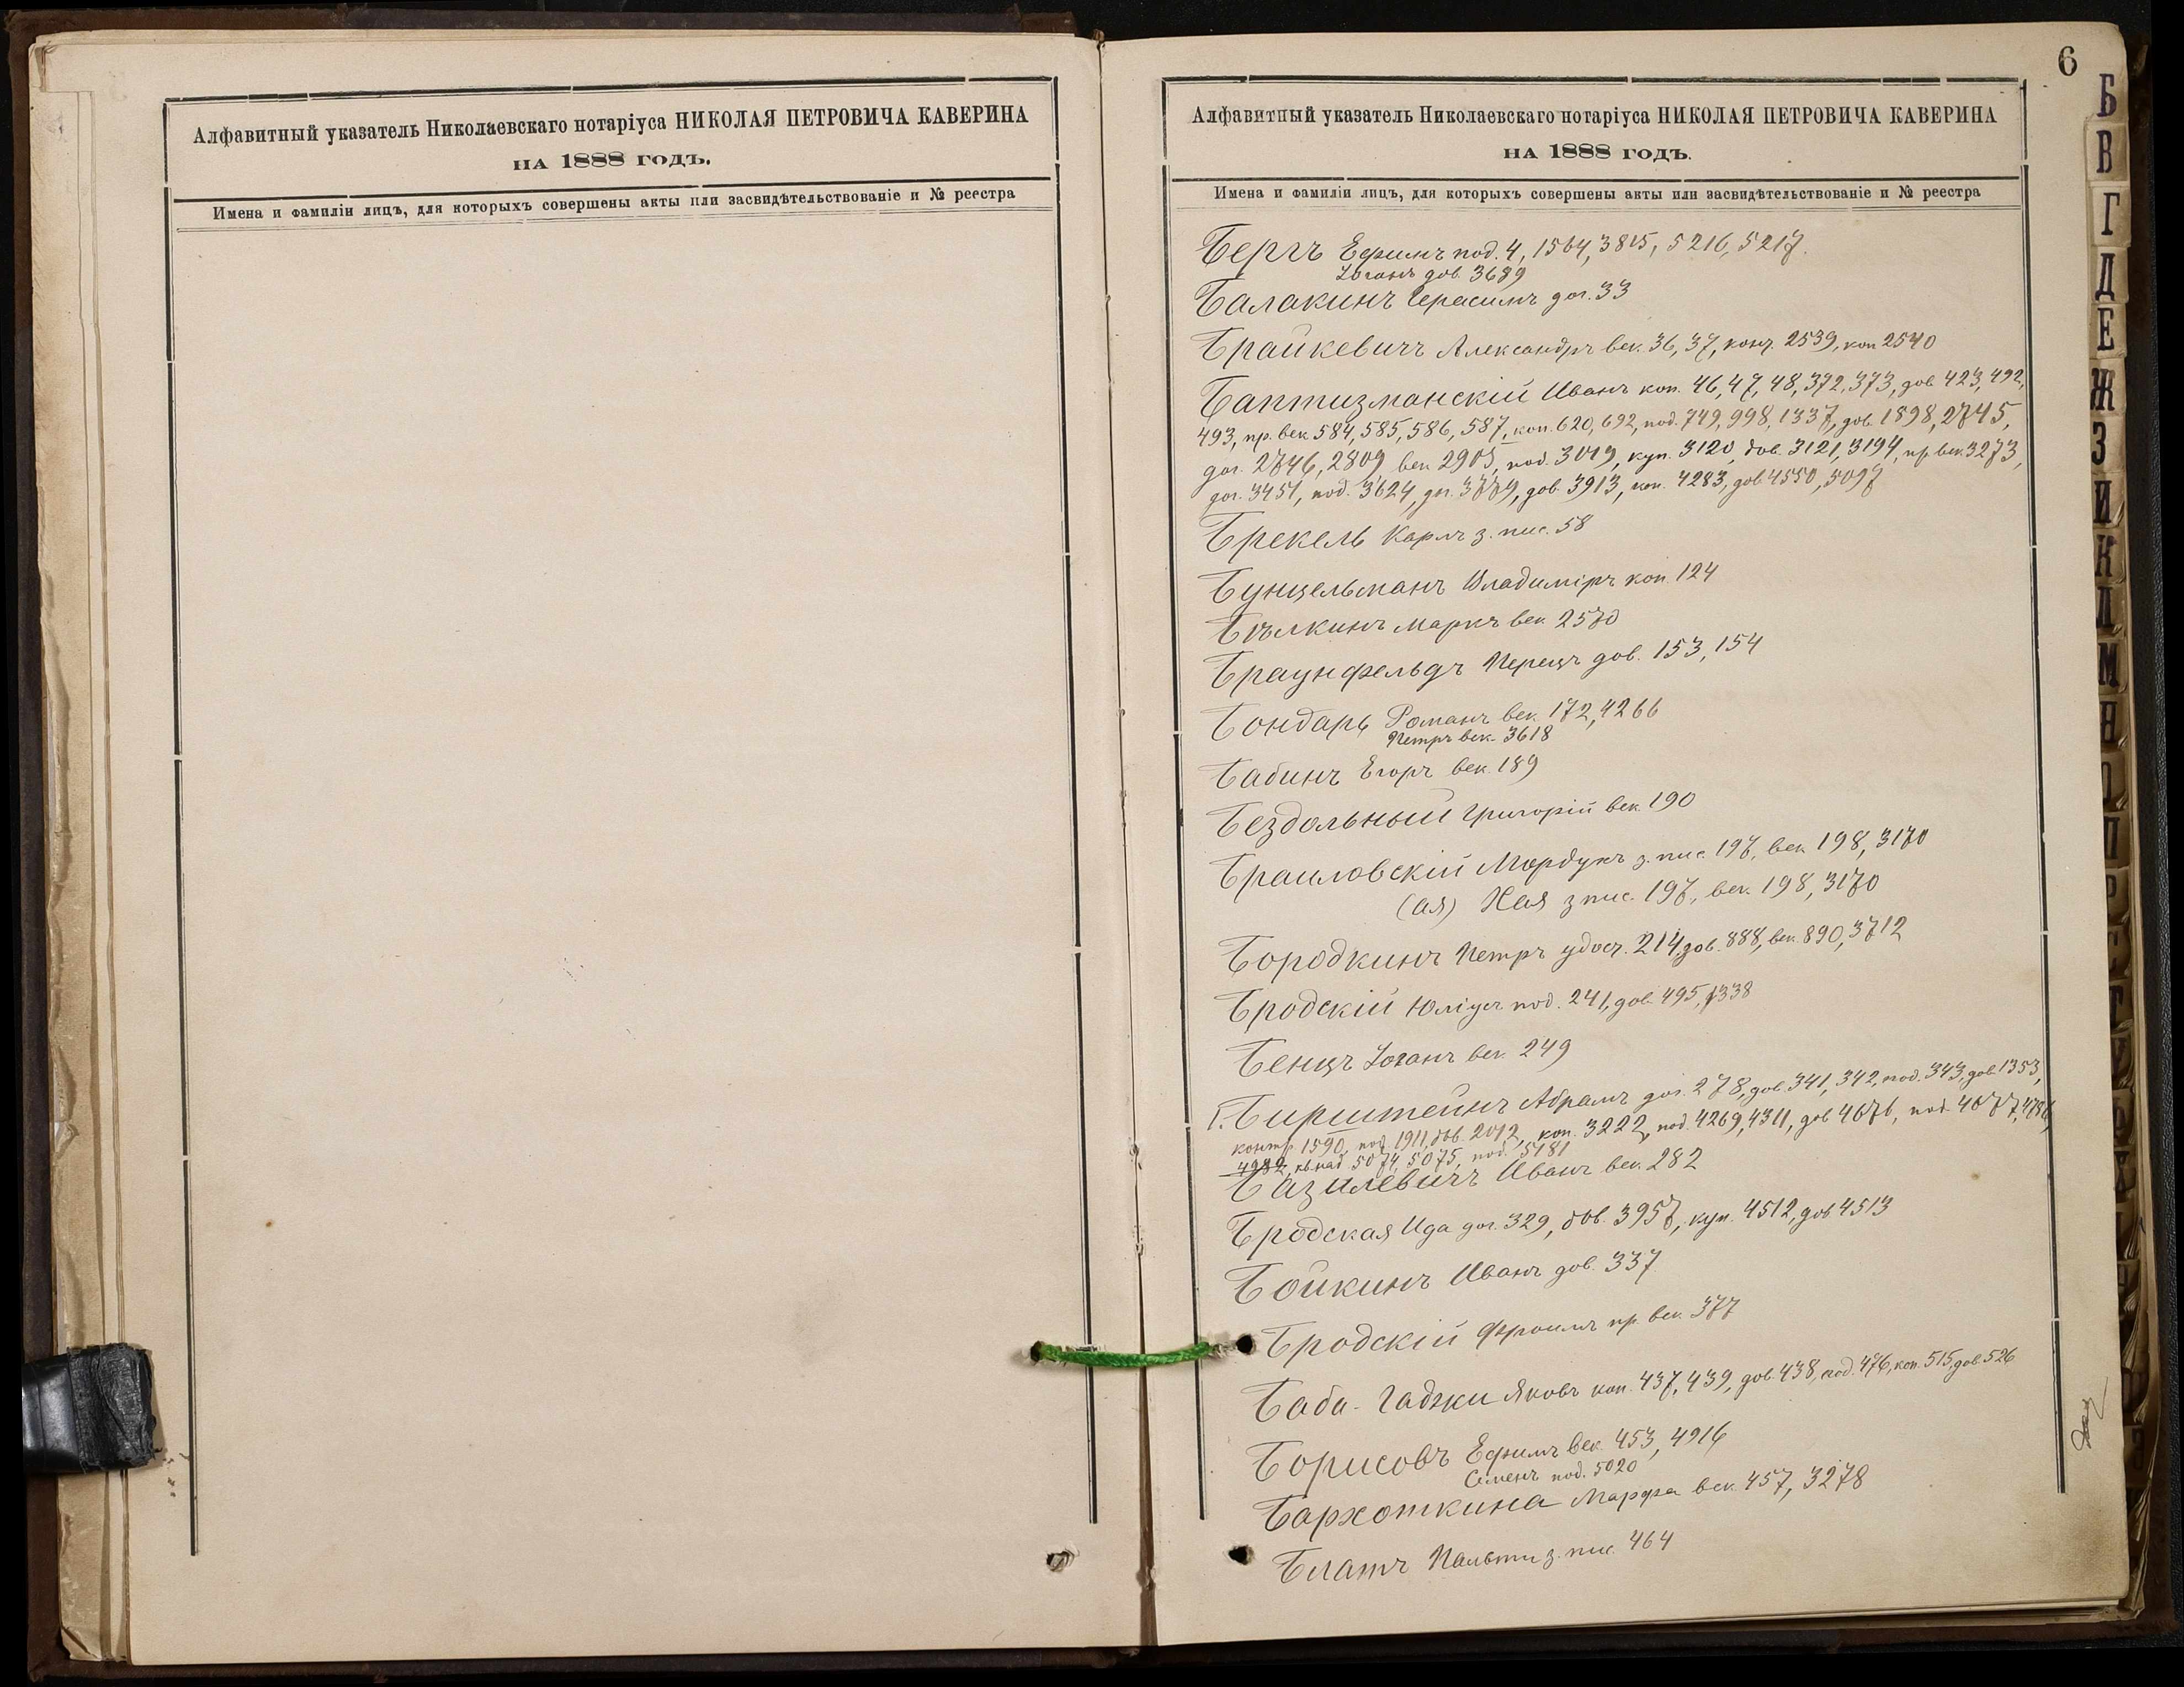 Алфавитный указатель Николаевскаго нотаріуса НИКОЛАЯ ПЕТРОВИЧА КАВЕРИНА
НА 1888 ГОДЪ.
Имена и фамиліи лицъ, для которыхъ совершены акты или засвидѣтельствованіе и № реестра
6
Алфавитный указатель Николаевскаго нотаріуса НИКОЛАЯ ПЕТРОВИЧА КАВЕРИНА
НА 1888 ГОДЪ.
Имена и фамиліи лицъ, для которыхъ совершены акты или засвидѣтельствованіе и № реестра
Бергъ Ефимъ под. 4, 1564, 3815, 5216, 5217.
Іоганъ дов. 3689
Балакинъ Герасимъ дог. 33
Брайкевичъ Александръ век. 36, 37, конт. 2539, коп 2540
Баптизманскій Иванъ коп. 46, 47, 48, 372, 373, дов. 423, 492,
493, пр. век 584, 585, 586, 587, коп. 620, 692, под. 749, 998, 1337, дов. 1898, 2745,
дог. 2746, 2809 век 2905, под. 3019, куп. 3120, дов. 3121, 3194, пр век 3273,
дог. 3451, под. 3624, дог. 3779, дов. 3913, коп. 4283, дов 4550, 5097
Брекель Карлъ з. пис. 58
Бунцельманъ Владиміръ коп. 124
Бѣлкинъ Маркъ век. 2570
Браунфельдъ Перецъ дов. 153, 154
Бондарь Романъ век. 172, 4266
Петръ век. 3618
Бабинъ Егоръ век. 189
Бездольный Григорій век. 190
Браиловскій Мордухъ з. пис. 197, век 198, 3170
(ая) Хая з пис. 197, век. 198, 3170
Бородкинъ Петръ удост. 214, дов. 888, век. 890, 3712
Бродскій Юліусъ под. 241, дов. 495, 1338
Бенцъ Іоганъ век. 249
Бирштейнъ Абрамъ дог. 278, дов. 341, 342, под. 343, дов. 1353,
контр. 1590, под. 1911, дов. 2012, коп. 3222, под. 4269, 4311, дов 4676, под 4677, 4786
4982, 5074, 5075, под. 5181
Базилевичъ Иванъ век. 282
Бродская Ида дог. 329, дов. 3957, куп. 4512, дов 4513
Бойкинъ Иванъ дов. 337
Бродскій Фроимъ пр. век. 377
Баба-Гаджи Яковъ коп. 437, 439, дов. 438, под. 476, коп. 515, дов. 526
Борисовъ Ефимъ век. 453, 4916
Семенъ под. 5020
Бархоткина Марфа век. 457, 3278
Блатъ з. пис. 464
Б
В
Г
Д
Е
Ж
З
И
К
Л
М
Н
О
П
Р
С
Т
У
Ф
Х